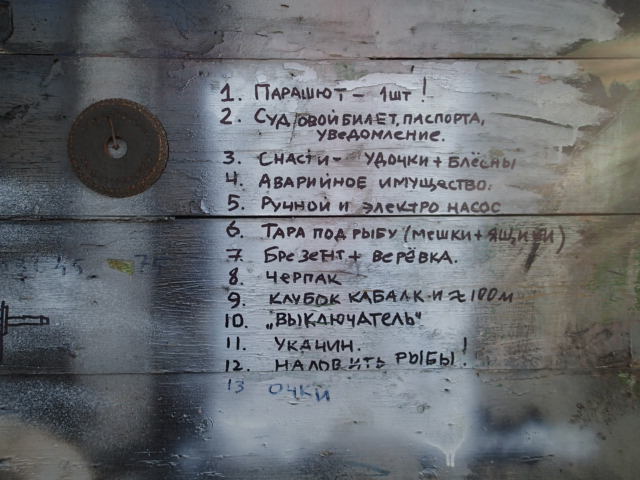 1. ПАРАШЮТ – 1шт!
2. СУДОВОЙ БИЛЕТ, ПАСПОРТА,
УВЕДОМЛЕНИЕ.
3. СНАСТИ – УДОЧКИ + БЛЁСНЫ
4. АВАРИЙНОЕ ИМУЩЕСТВО.
5. РУЧНОЙ И ЭЛЕКТРО НАСОС
6. ТАРА ПОД РЫБУ (МЕШКИ + ЯЩИКИ)
7. БРЕЗЕНТ + ВЕРЁВКА.
8. ЧЕРПАК
9. КЛУБОК КАБАЛКИ ≈ 100м
10. „ВЫКЛЮЧАТЕЛЬ“
11. УКАЧИН.
12. НАЛОВИТЬ РЫБЫ!
13 ОЧКИ